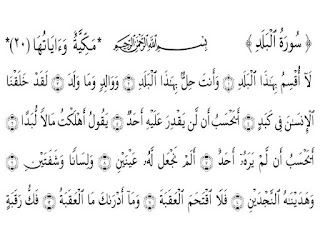 ﴿ سُورَةُ ٱلْبَلَدِ ﴾ بِسْمِ ٱللَّهِ ٱلرَّحْمَٰنِ ٱلرَّحِيمِ *مَكِّيَّةٌ وَءَايَاتُهَا (٢٠)*
لَآ أُقْسِمُ بِهَٰذَا ٱلْبَلَدِ ۝ وَأَنتَ حِلٌّۢ بِهَٰذَا ٱلْبَلَدِ ۝ وَوَالِدٍ وَمَا وَلَدَ ۝ لَقَدْ خَلَقْنَا
ٱلْإِنسَٰنَ فِى كَبَدٍ ۝ أَيَحْسَبُ أَن لَّن يَقْدِرَ عَلَيْهِ أَحَدٌ ۝ يَقُولُ أَهْلَكْتُ مَالًا لُّبَدًا ۝
أَيَحْسَبُ أَن لَّمْ يَرَهُۥٓ أَحَدٌ ۝ أَلَمْ نَجْعَل لَّهُۥ عَيْنَيْنِ ۝ وَلِسَانًا وَشَفَتَيْنِ ۝
وَهَدَيْنَٰهُ ٱلنَّجْدَيْنِ ۝ فَلَا ٱقْتَحَمَ ٱلْعَقَبَةَ ۝ وَمَآ أَدْرَىٰكَ مَا ٱلْعَقَبَةُ ۝ فَكُّ رَقَبَةٍ